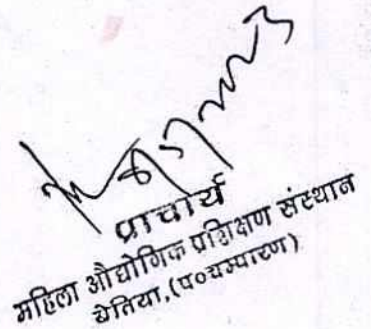 प्राचार्य
महिला औद्योगिक प्रशिक्षण संस्थान
बेतिया,(प०चम्पारण)